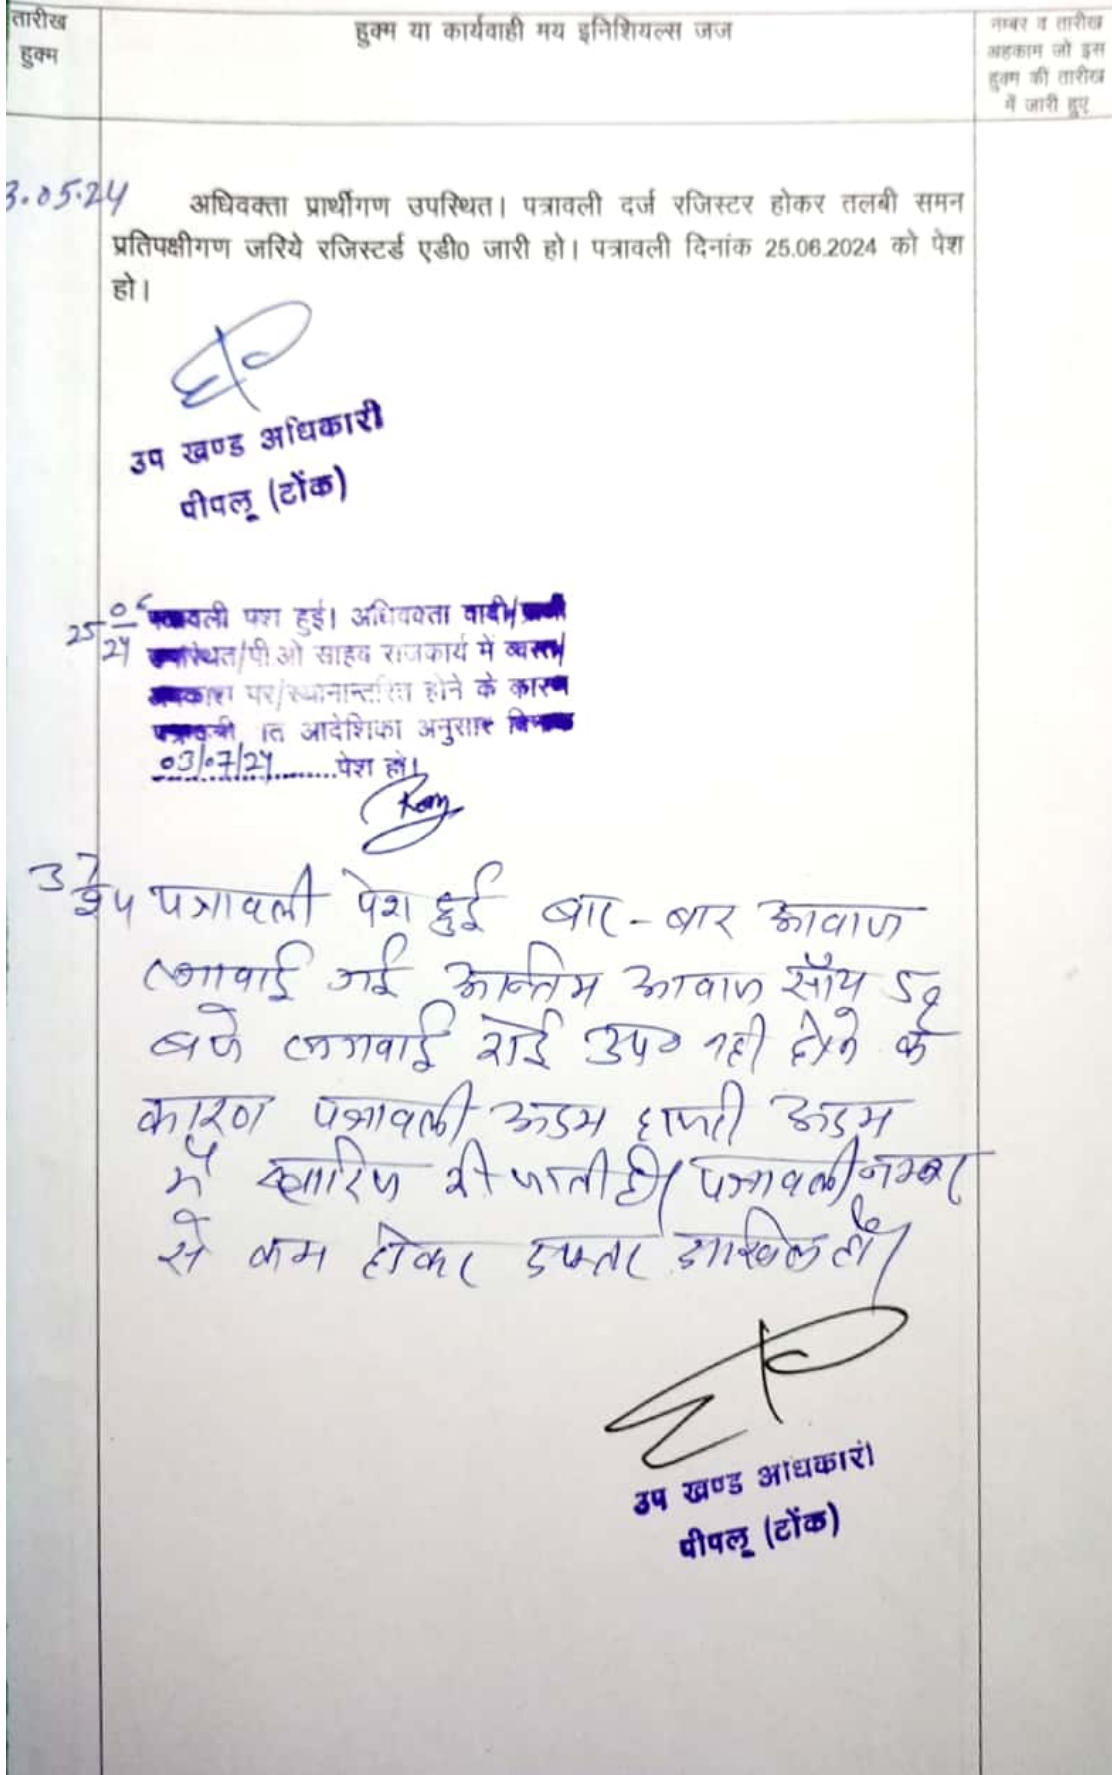 तारीख
हुक्म
हुक्म या कार्यवाही मय इनिशियल्स जज
नम्बर व तारीख
अहकाम जो इस
हुक्म की तारीख
में जारी हुए
3.05.24
अधिवक्ता प्रार्थीगण उपस्थित। पत्रावली दर्ज रजिस्टर होकर तलबी समन
प्रतिपक्षीगण जरिये रजिस्टर्ड एडी0 जारी हो। पत्रावली दिनांक 25.06.2024 को पेश
हो।
उप खण्ड अधिकारी
पीपलू (टोंक)
25 06/24 पत्रावली पेश हुई। अधिवक्ता वादी/
/पी.ओ साहब राजकार्य में व्यस्त/
पर/स्थानान्तरित होने के कारण
आदेशिका अनुसार
03/07/24 पेश हो।
3 7/24 पत्रावली पेश हुई बार-बार आवाज
लगवाई गई अन्तिम आवाज सॉय
बजे लगवाई गई उप0 नही होने के
कारण पत्रावली अदम हाजरी अदम
में खारिज की जाती है। पत्रावली नम्बर
से कम होकर दफ्तर दाखिल हो।
उप खण्ड अधिकारी
पीपलू (टोंक)